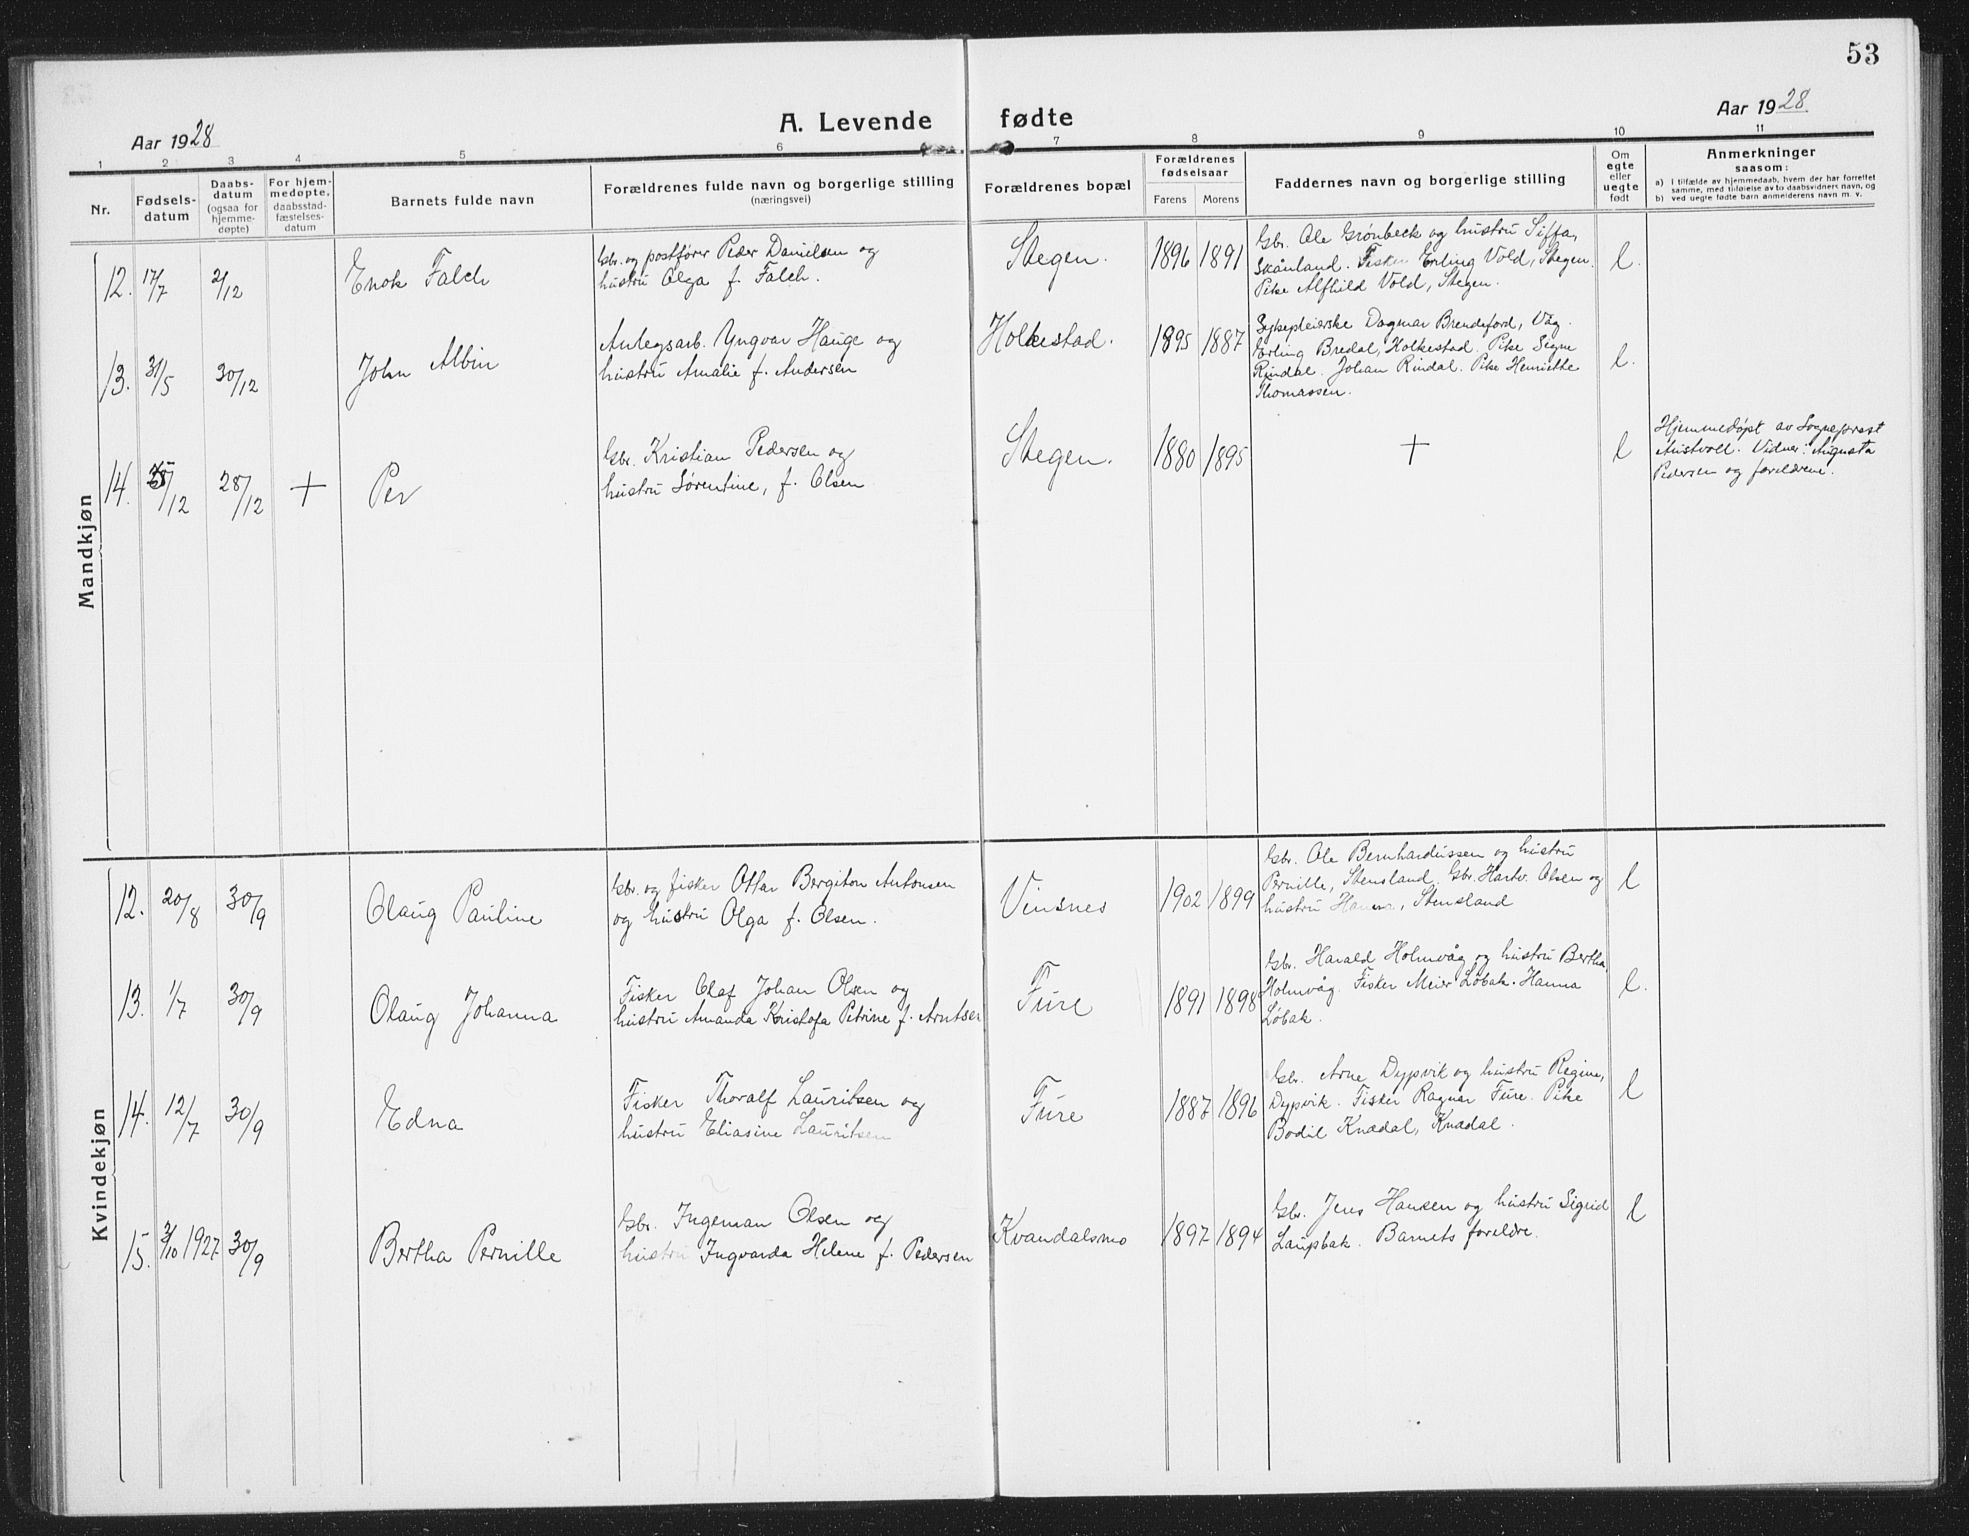 53
A. Levende fødte
Aar 1928
Aar 1928
1 2 3 4 5 6 7 8 9 10 11
Nr.
Fødsels-
datum
Daabs-
datum
(ogsaa for
hjemme-
døpte)
For hjem-
medøpte,
daabsstad-
fæstelses-
datum
Barnets fulde navn
Forældrenes fulde navn og borgerlige stilling
(næringsvei)
Forældrenes bopæl
Forældrenes
fødselsaar
Farens
Morens
Faddernes navn og borgerlige stilling
Om
egte
eller
uegte
født
Anmerkninger
saasom:
a) I tilfælde av hjemmedaab, hvem der har forrettet
samme, med tilføielse av to daabsvidners navn, og
b) ved uegte fødte barn anmelderens navn m. v.
Mandkjøn
12. 17/7 2/12
Enok Falch
Gbr. og postfører Peder Danielsen og
hustru Olga f. Falch.
Stegen.
1896 1891
Gbr. Ole Grønbeck og hustru Siffa,
Skånland. Fisker Erling Vold, Stegen.
Pike Alfhild Vold, Stegen.
e.
13. 31/5 30/12
John Albin
Anlegsarb. Yngvar Hauge og
hustru Amalie f. Andersen
Holkestad.
1895 1887
Sykepleierske Dagmar Brendeford, Våg.
Erling Bredal, Holkestad. Pike Signe
Rindal. Johan Rindal. Pike Henriette
Thomassen.
e.
14. /12 28/12 +
Per
Gbr. Kristian Pedersen og
hustru Sørentine, f. Olsen
Stegen.
1880 1895
+
e
Hjemmedøpt av Sogneprest
Austvoll. Vidner: Augusta
Pedersen og foreldrene.
Kvindekjøn
12. 20/8 30/9
Olaug Pauline
Gbr. og fisker Ottar Bergiton Antonsen
og hustru Olga f. Olsen.
Vinsnes
1902 1899
Gbr. Ole Bernhardussen og hustru
Pernille, Stensland. Gbr. Hartv. Olsen og
hustru, Stensland
e
13. 1/7 30/9
Olaug Johanna
Fisker Olaf Johan Olsen og
hustru Amanda Kristofa Petrine f. Arntsen
Fure
1891 1898
Gbr. Harald Holmvåg og hustru Bertha,
Holmvåg. Fisker Meier Løbak. Hanna
Løbak.
e.
14. 12/7 30/9
Edna
Fisker Thoralf Lauritsen og
hustru Eliasine Lauritsen
Fure
1887 1896
Gbr. Arne Dypvik og hustru Regine,
Dypvik. Fisker Ragnar Fure. Pike
Bodil Knædal, Knædal.
e
15. 3/10 1927 30/9
Bertha Pernille
Gbr. Ingeman Olsen og
hustru Ingvarda Helene f. Pedersen
Kvandalsmo
1897 1894
Gbr. Jens Hansen og hustru Sigrid
Laupbak. Barnets foreldre.
e